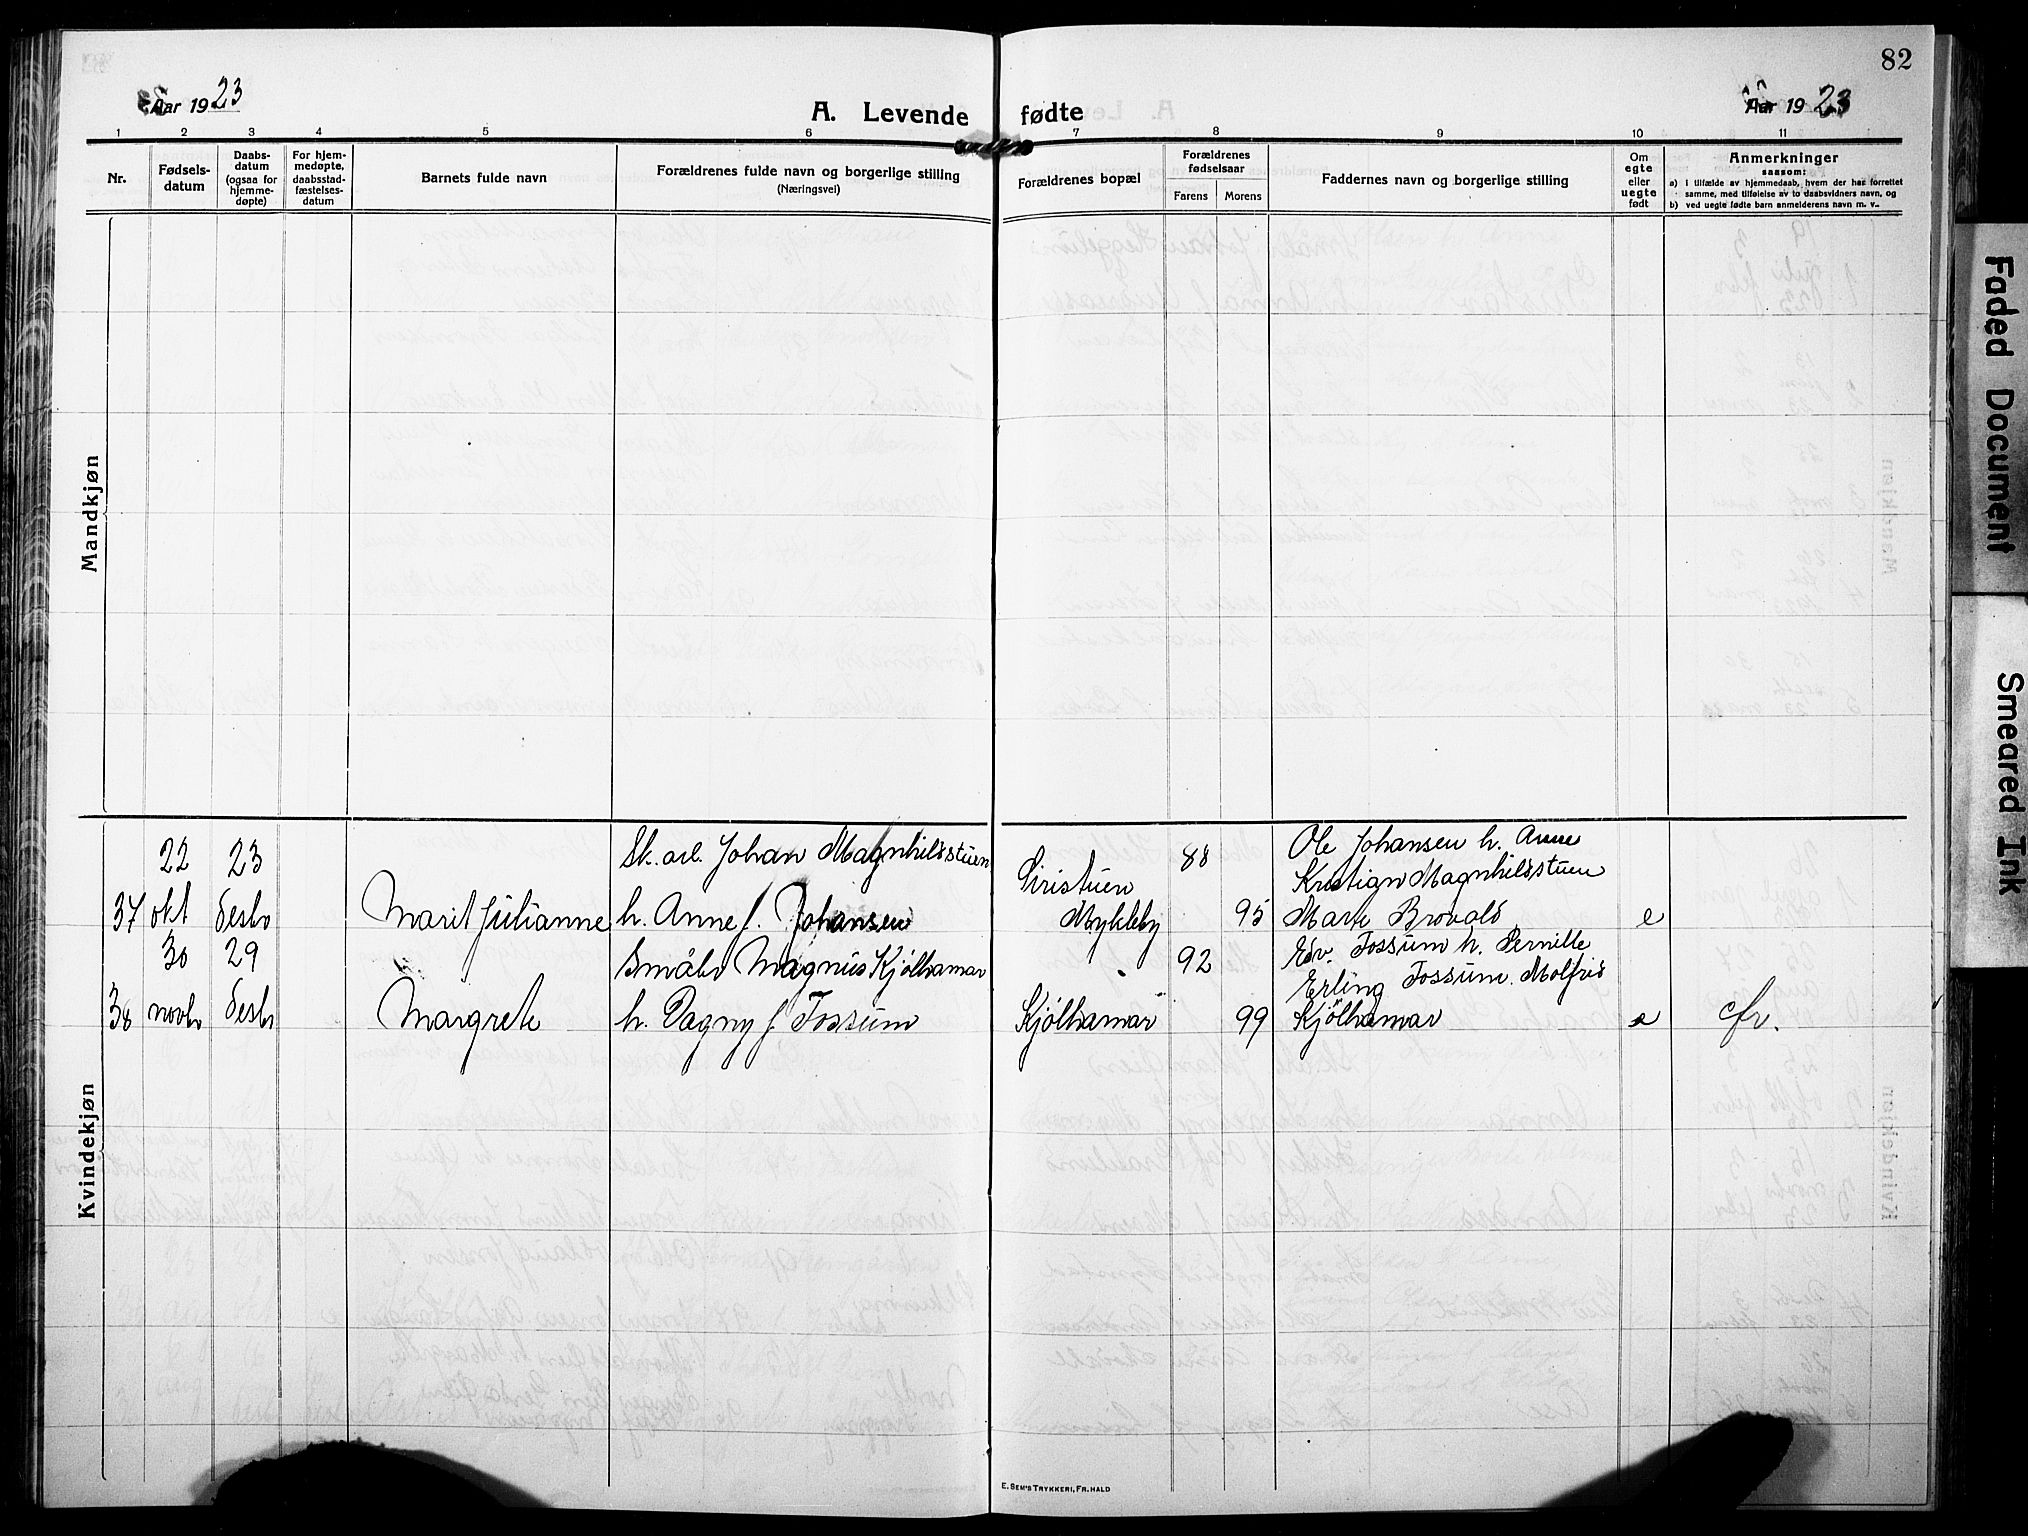 82
Aar 1923
A. Levende fødte
Aar 1923
1 2 3 4 5 6 7 8 9 10 11
Nr.
Fødsels-
datum
Daabs-
datum
(ogsaa for
hjemme-
døpte)
For hjem-
medøpte,
daabsstad-
fæstelses-
datum
Barnets fulde navn
Forældrenes fulde navn og borgerlige stilling
(Næringsvei)
Forældrenes bopæl
Forældrenes
fødselsaar
Farens Morens
Faddernes navn og borgerlige stilling
Om
egte
eller
uegte
født
Anmerkninger
saasom:
a) i tilfælde av hjemmedaab, hvem der har forrettet
samme, med tilføielse av to daabsvidners navn, og
b) ved uegte fødte barn anmelderens navn m. v.
Mandkjøn
Kvindekjøn
22 23 Sk. arb. Johan Magnhildsstuen 88 Ole Johansen h. Anne
Siristuen Kristian Magnhildsstuen
37 okt desbr Marit Julianne h. Anne f. Johansen Mykleby 95 Marte Brovold e
30 29 Småbr Magnus Kjølhamar 92 Edv. Fossum h. Pernille
Erling Fossum. Molfrid
38 novbr desbr Margrete h. Dagny f. Fossum Kjølhamar 99 Kjølhamar e cfr.
E. SEM'S TRYKKERI, FR.HALD
Faded Document
Smeared Ink